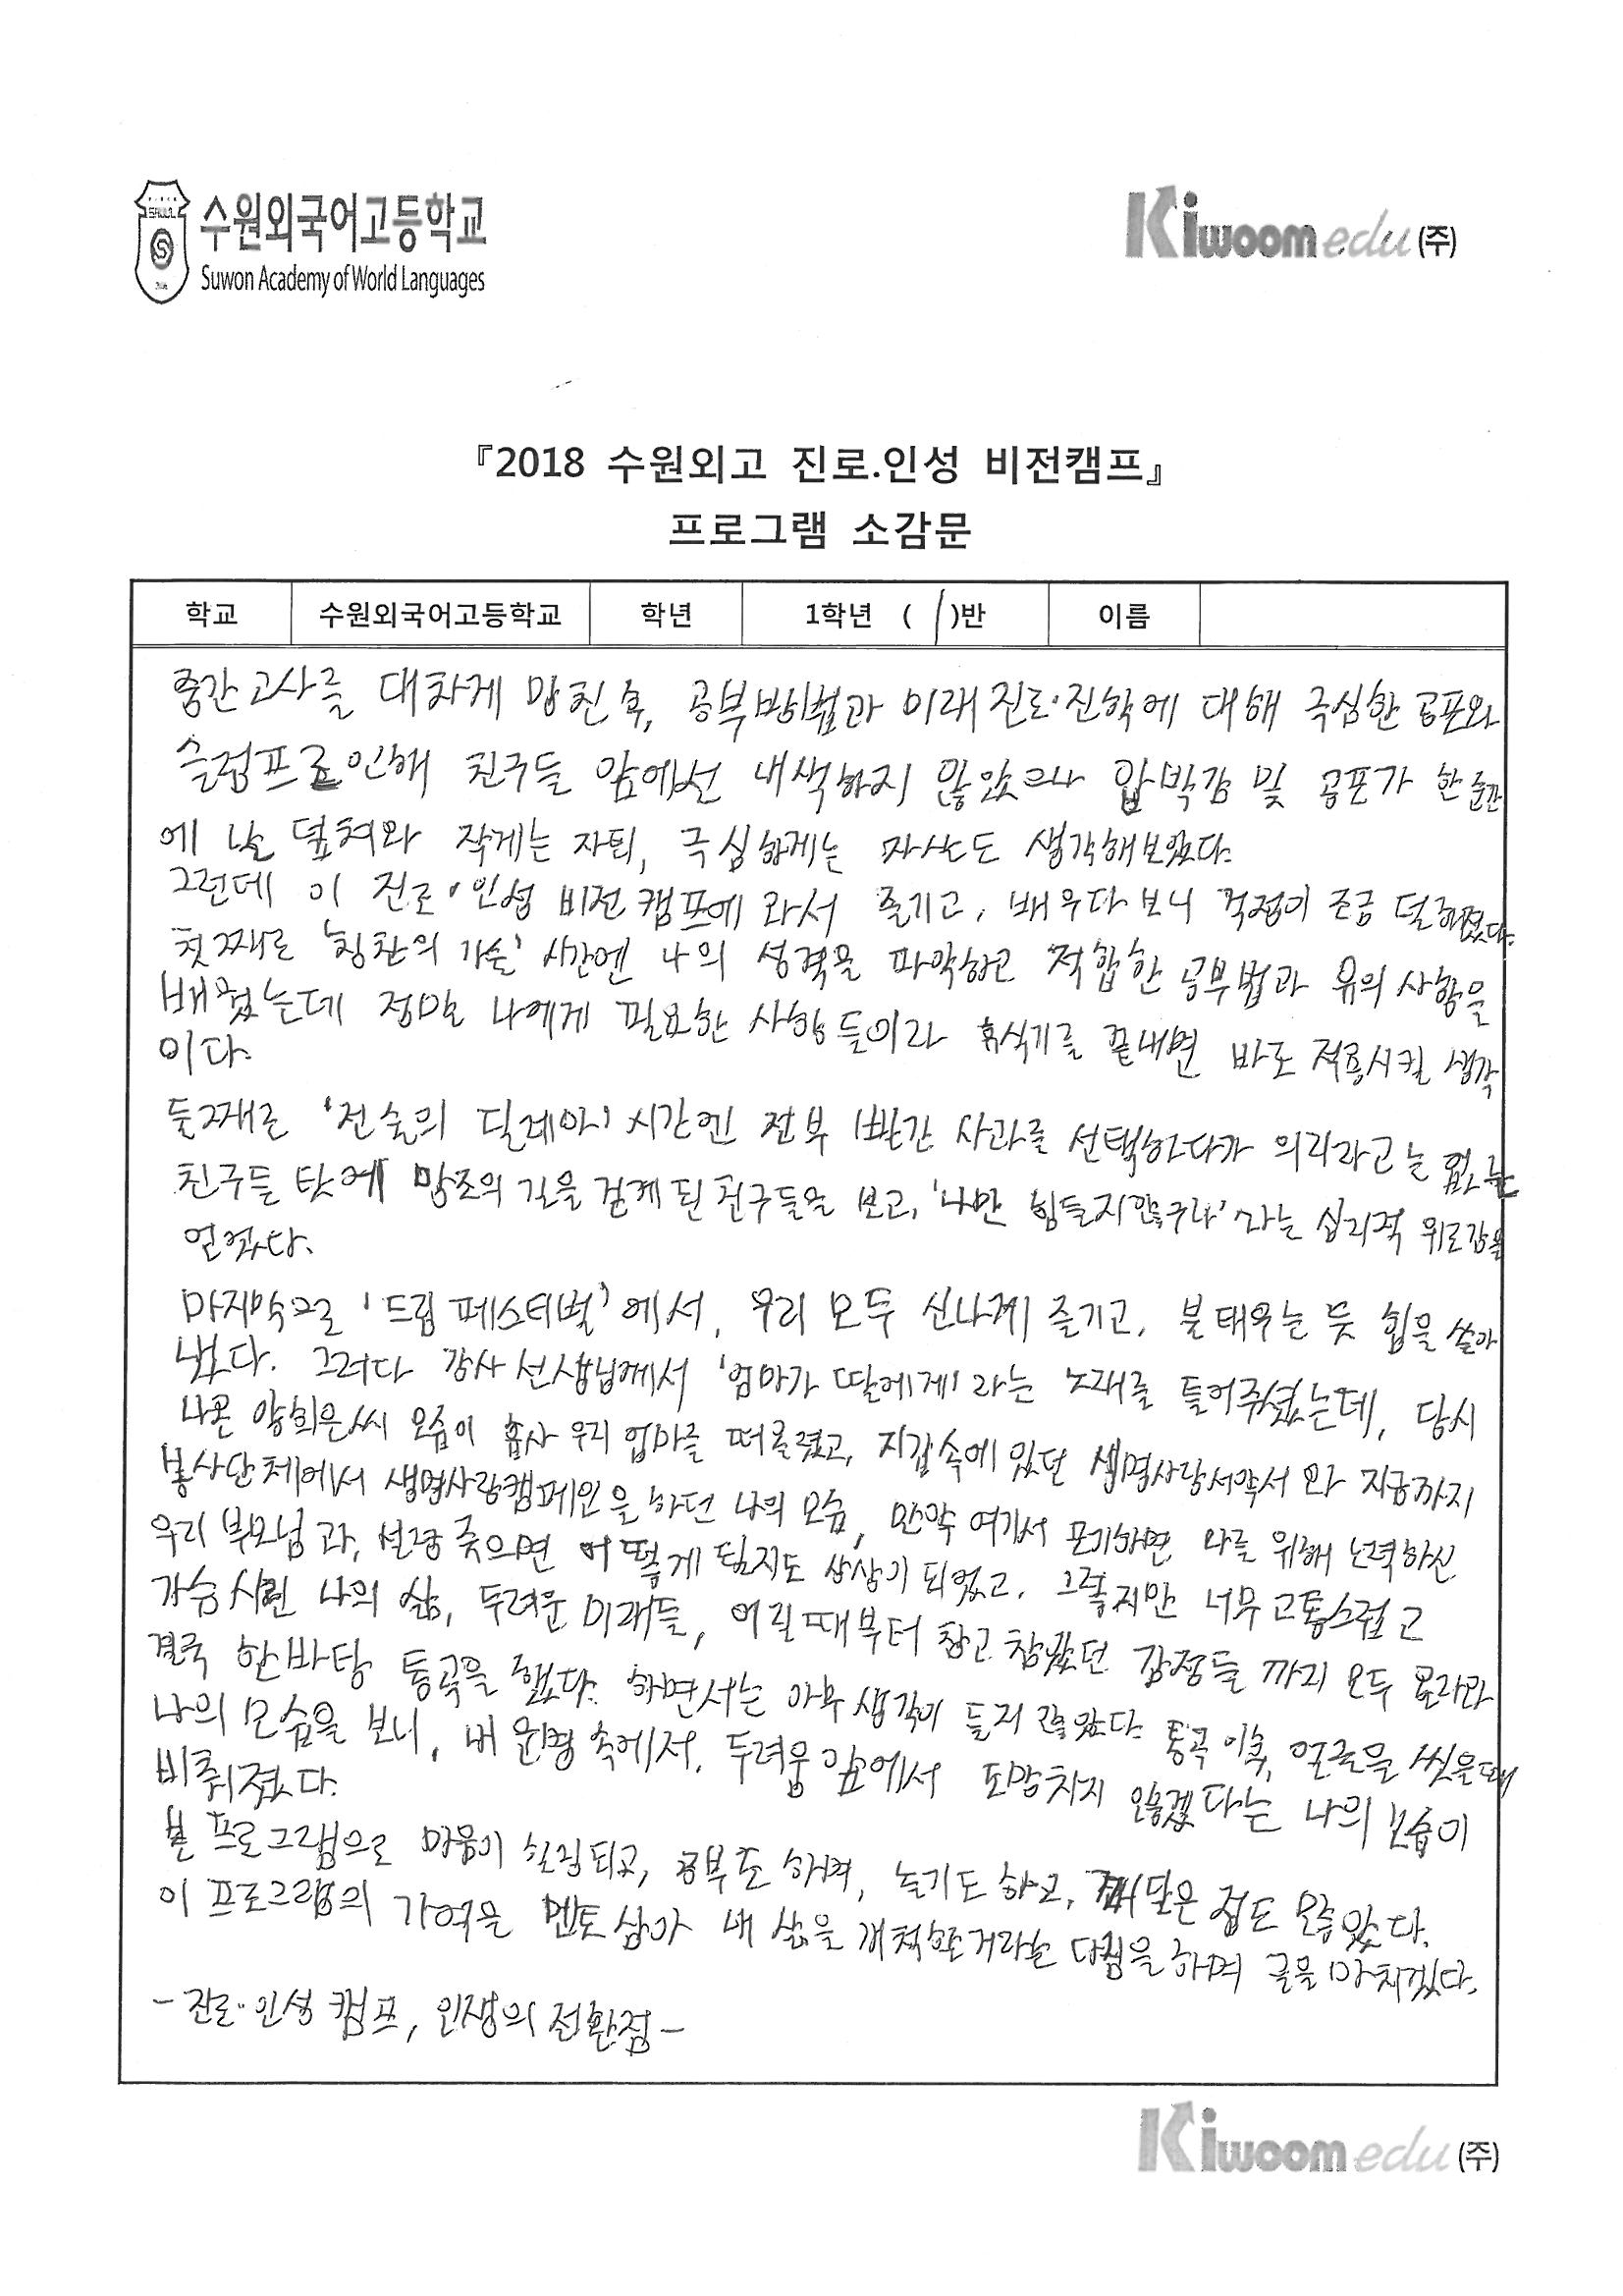 수원외국어고등학교
Suwon Academy of World Languages
Kiwoom edu (주)
『2018 수원외고 진로.인성 비전캠프』
프로그램 소감문
학교 수원외국어고등학교 학년 1학년 ( 1 )반 이름
중간고사를 대차게 망친 후, 공부방법과 미래 진로·진학에 대해 극심한 공포와
슬럼프로 인해 친구들 앞에선 내색하지 않았으나 압박감 및 공포가 한 순간
에 날 덮쳐와 작게는 자퇴, 극심하게는 자살도 생각해보았다.
그런데 이 진로·인성 비전캠프에 와서 즐기고, 배우다 보니 걱정이 조금 덜해졌다.
첫째로 '칭찬의 기술' 시간엔 나의 성격을 파악하고 적합한 공부법과 유의 사항을
배웠는데 정말 나에게 필요한 사항들이라 휴식기를 끝내면 바로 적용시킬 생각
이다.
둘째로 '전술의 딜레마' 시간엔 전부 빨간 사과를 선택하다가 의리라고는 없는
친구들 탓에 망조의 길을 걷게 된 친구들을 보고, '나만 힘들지않구나' 라는 심리적 위로감을
얻었다.
마지막으로 '드림 페스티벌'에서, 우리 모두 신나게 즐기고, 불태우는 듯 힘을 쏟아
냈다. 그러다 강사 선생님께서 '엄마가 딸에게' 라는 노래를 틀어주셨는데, 당시
나온 양희은씨 모습이 흡사 우리 엄마를 떠올렸고, 지갑속에 있던 생명사랑서약서 와 지금까지
봉사단체에서 생명사랑캠페인을 하던 나의 모습, 만약 여기서 포기하면 나를 위해 노력하신
우리 부모님과, 설령 죽으면 어떻게 될지도 상상이 되었고. 그렇지만 너무 고통스럽고
가슴시린 나의 삶, 두려운 미래들, 어릴때부터 참고 참았던 감정들 까지 모두 몰려와
결국 한바탕 통곡을 했다. 하면서는 아무 생각이 들지 않았다. 통곡 이후, 얼굴을 씻을때
나의 모습을 보니, 내 운명 속에서, 두려움 앞에서 도망치지 않겠다는 나의 모습이
비춰졌다.
본 프로그램으로 마음이 힐링되고, 공부도 하며, 놀기도 하고, 깨달은 점도 많았다.
이 프로그램의 기억을 멘토삼아 내 삶을 개척할거라는 다짐을 하며 글을 마치겠다.
- 진로·인성 캠프, 인생의 전환점 -
Kiwoom edu (주)